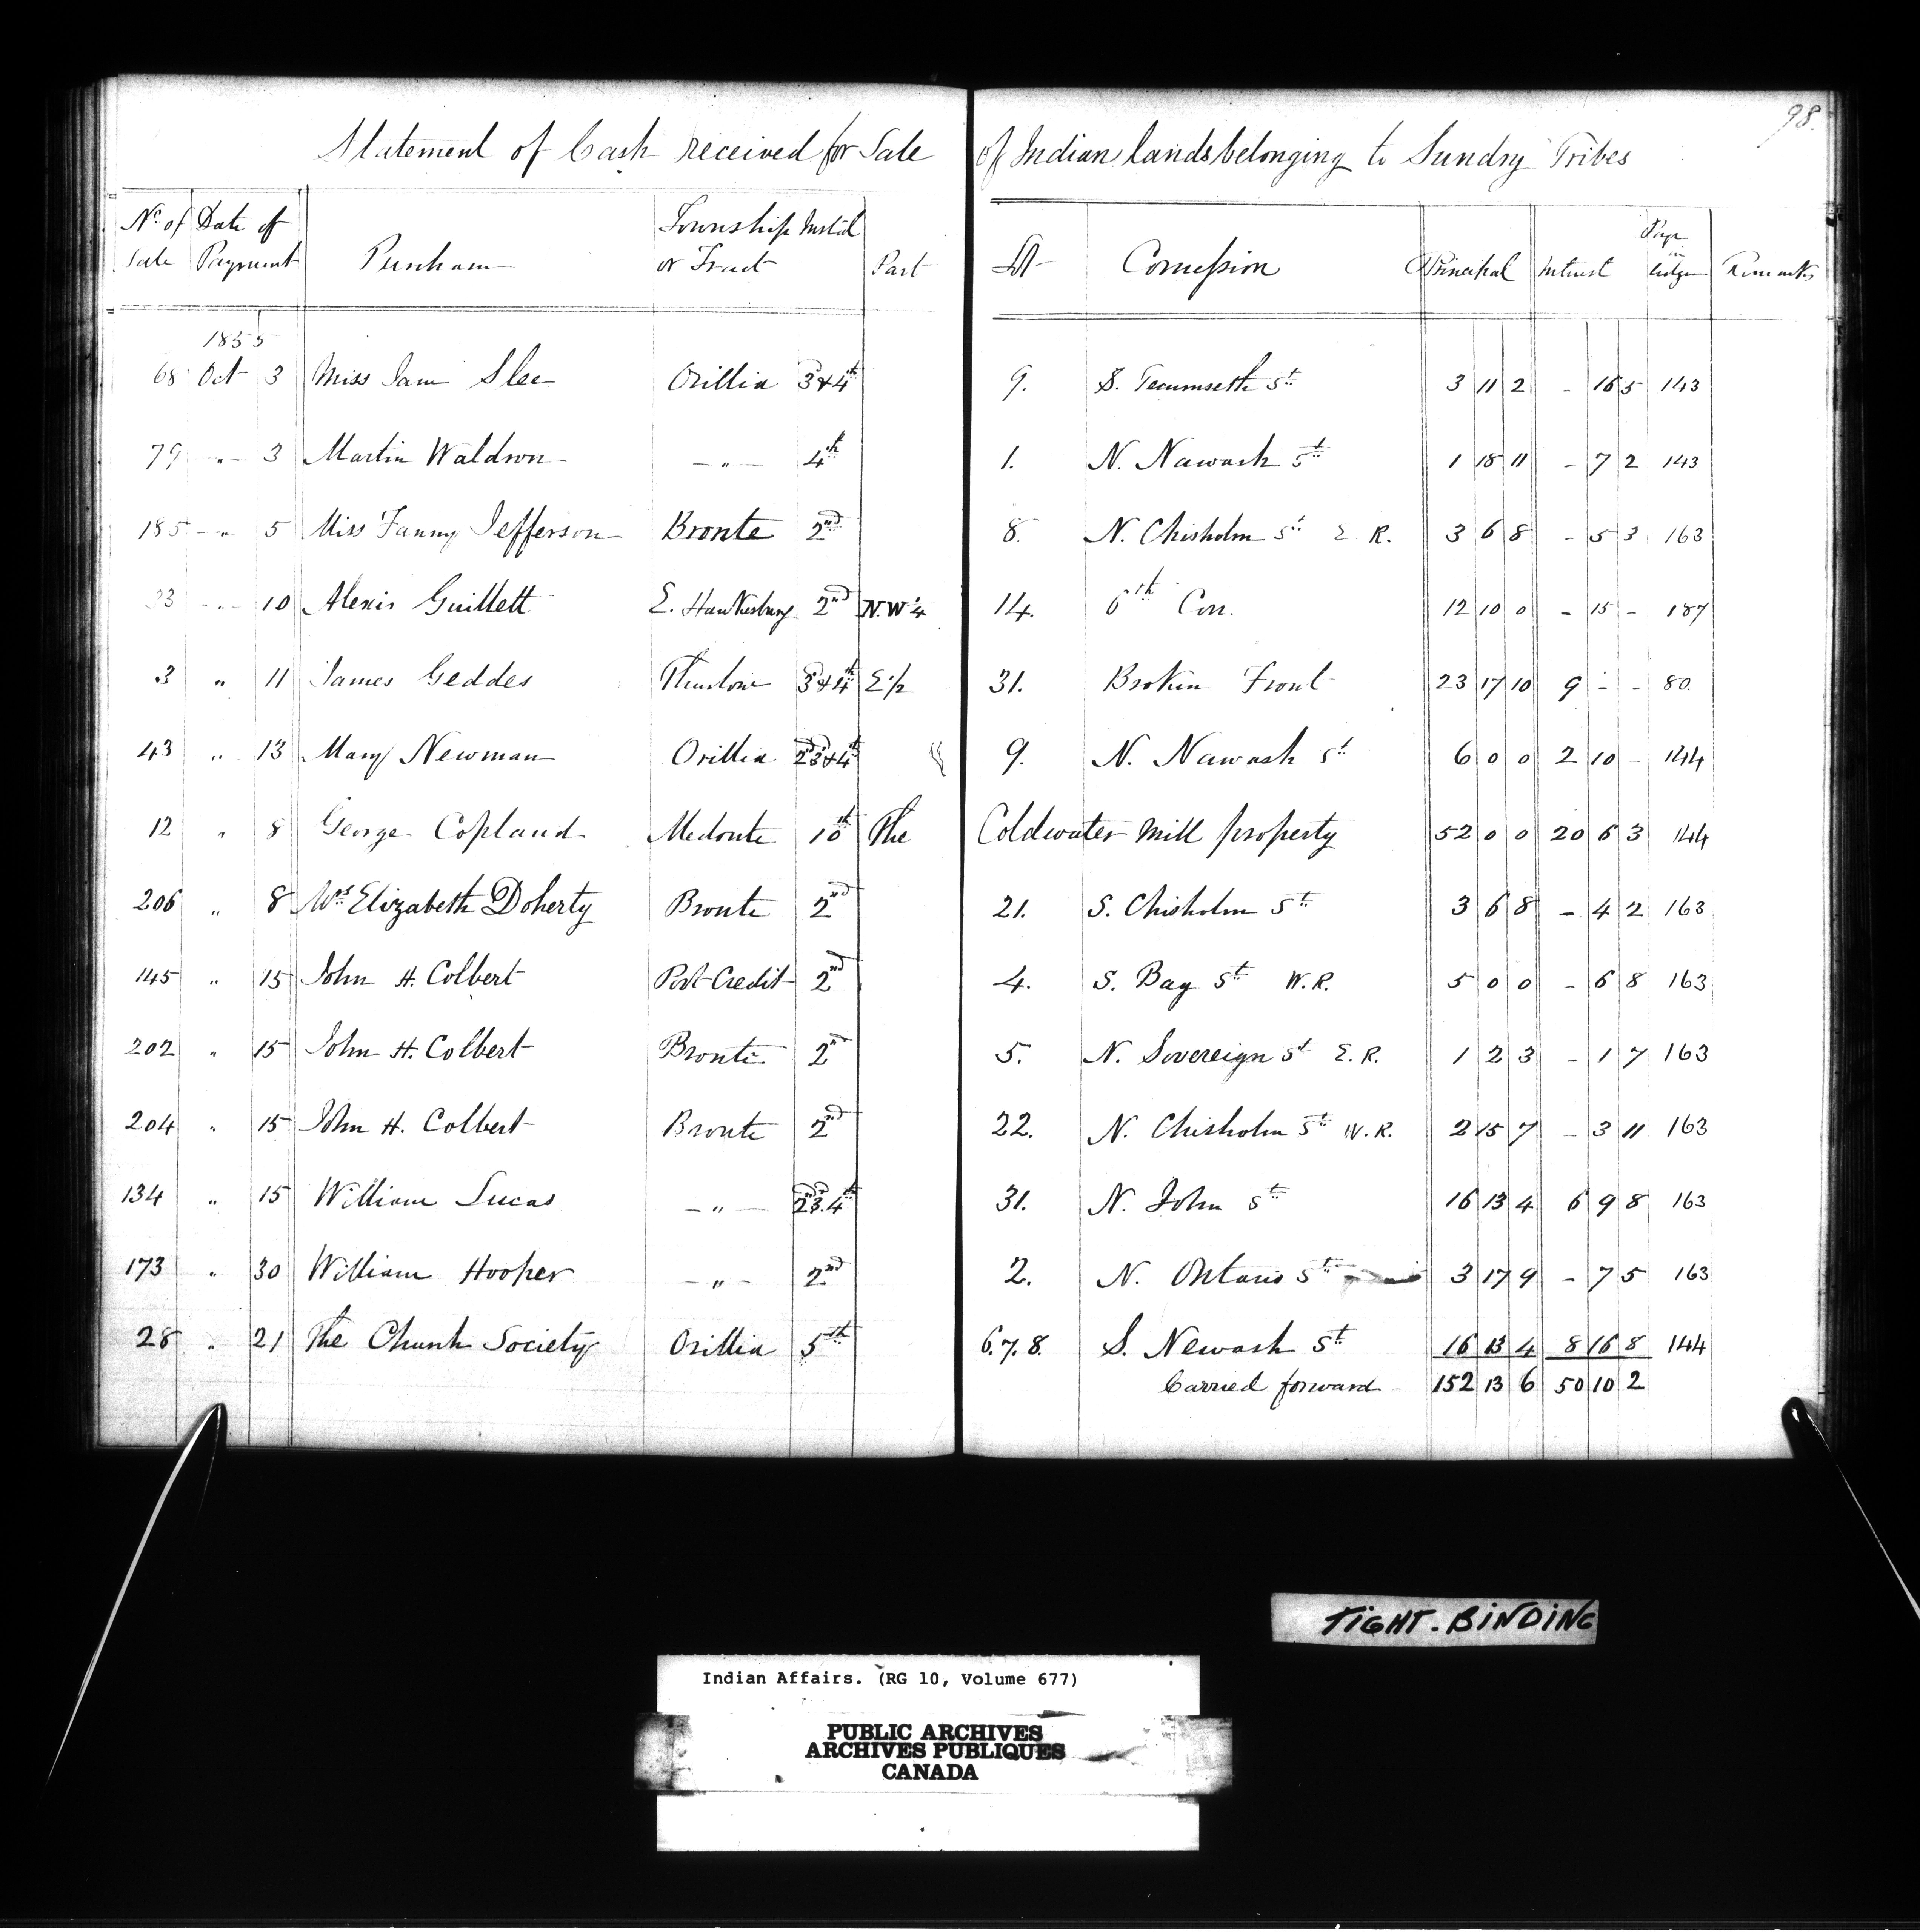 98.
Statement of Cash received for Sale of Indian lands belonging to Sundry Tribes
No. of Sale Date of Payment Township or Tract Instal Part Lot Concession Principal Interest Page in Ledger Remarks
1855
68 Oct 3 Miss Jane Slee Orillia 3 & 4th 9. S. Tecumseth St 3 11 2 - 16 5 143
79 -"- 3 Martin Waldron -"- 4th 1. N. Nawash St 1 18 11 - 7 2 143
185 -"- 5 Miss Fanny Jefferson Bronte 2nd 8. N. Chisholm St E R. 3 6 8 - 5 3 163
33 -"- 10 Alexis Guillett E. Hawkesbury 2nd N.W 1/4 14. 6th Con. 12 10 0 - 15 - 187
3 " 11 James Geddes Thurlow 3d & 4th E 1/2 31. Broken Front 23 17 10 9 - - 80
43 " 13 Mary Newman Orillia 2nd 3d & 4th 9. N. Nawash St 6 0 0 2 10 - 144
12 " 8 George Copland Medonte 10th The Coldwater Mill property 52 0 0 20 6 3 144
206 " 8 Mrs Elizabeth Doherty Bronte 2nd 21. S. Chisholm St 3 6 8 - 4 2 163
145 " 15 John H. Colbert Port Credit 2nd 4. S. Bay St W.R. 5 0 0 - 6 8 163
202 " 15 John H. Colbert Bronte 2nd 5. N. Sovereign St E.R. 1 2 3 - 1 7 163
204 " 15 John H. Colbert Bronte 2nd 22. N. Chisholm St W.R. 2 15 7 - 3 11 163
134 " 15 William Lucas -"- 2nd 3d 4th 31. N. John St 16 13 4 6 9 8 163
173 " 30 William Hooper -"- 2nd 2. N. Ontario St 3 17 9 - 7 5 163
28 " 21 The Church Society Orillia 5th 6. 7. 8. S. Newash St 16 13 4 8 16 8 144
Carried forward 152 13 6 50 10 2
TIGHT-BINDING
Indian Affairs. (RG 10, Volume 677)
PUBLIC ARCHIVES
ARCHIVES PUBLIQUES
CANADA